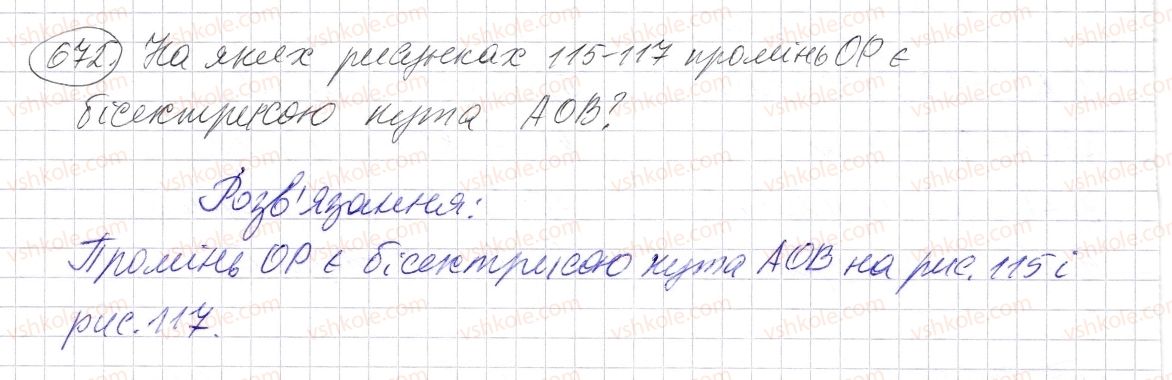 672) На яких рисунках 115-117 промінь OP є
бісектрисою кута AOB?
Розв'язання:
Промінь OP є бісектрисою кута AOB на рис. 115 і
рис. 117.